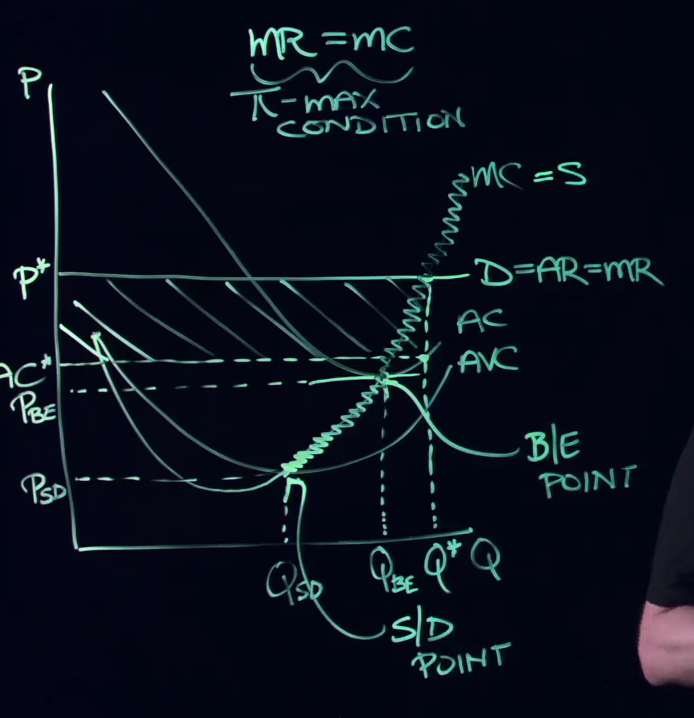 MR = MC
π-MAX
CONDITION
P
MC = S
P*
D = AR = MR
AC
AC*
AVC
P_BE
B/E
POINT
P_SD
Q_SD
Q_BE
Q*
Q
S/D
POINT